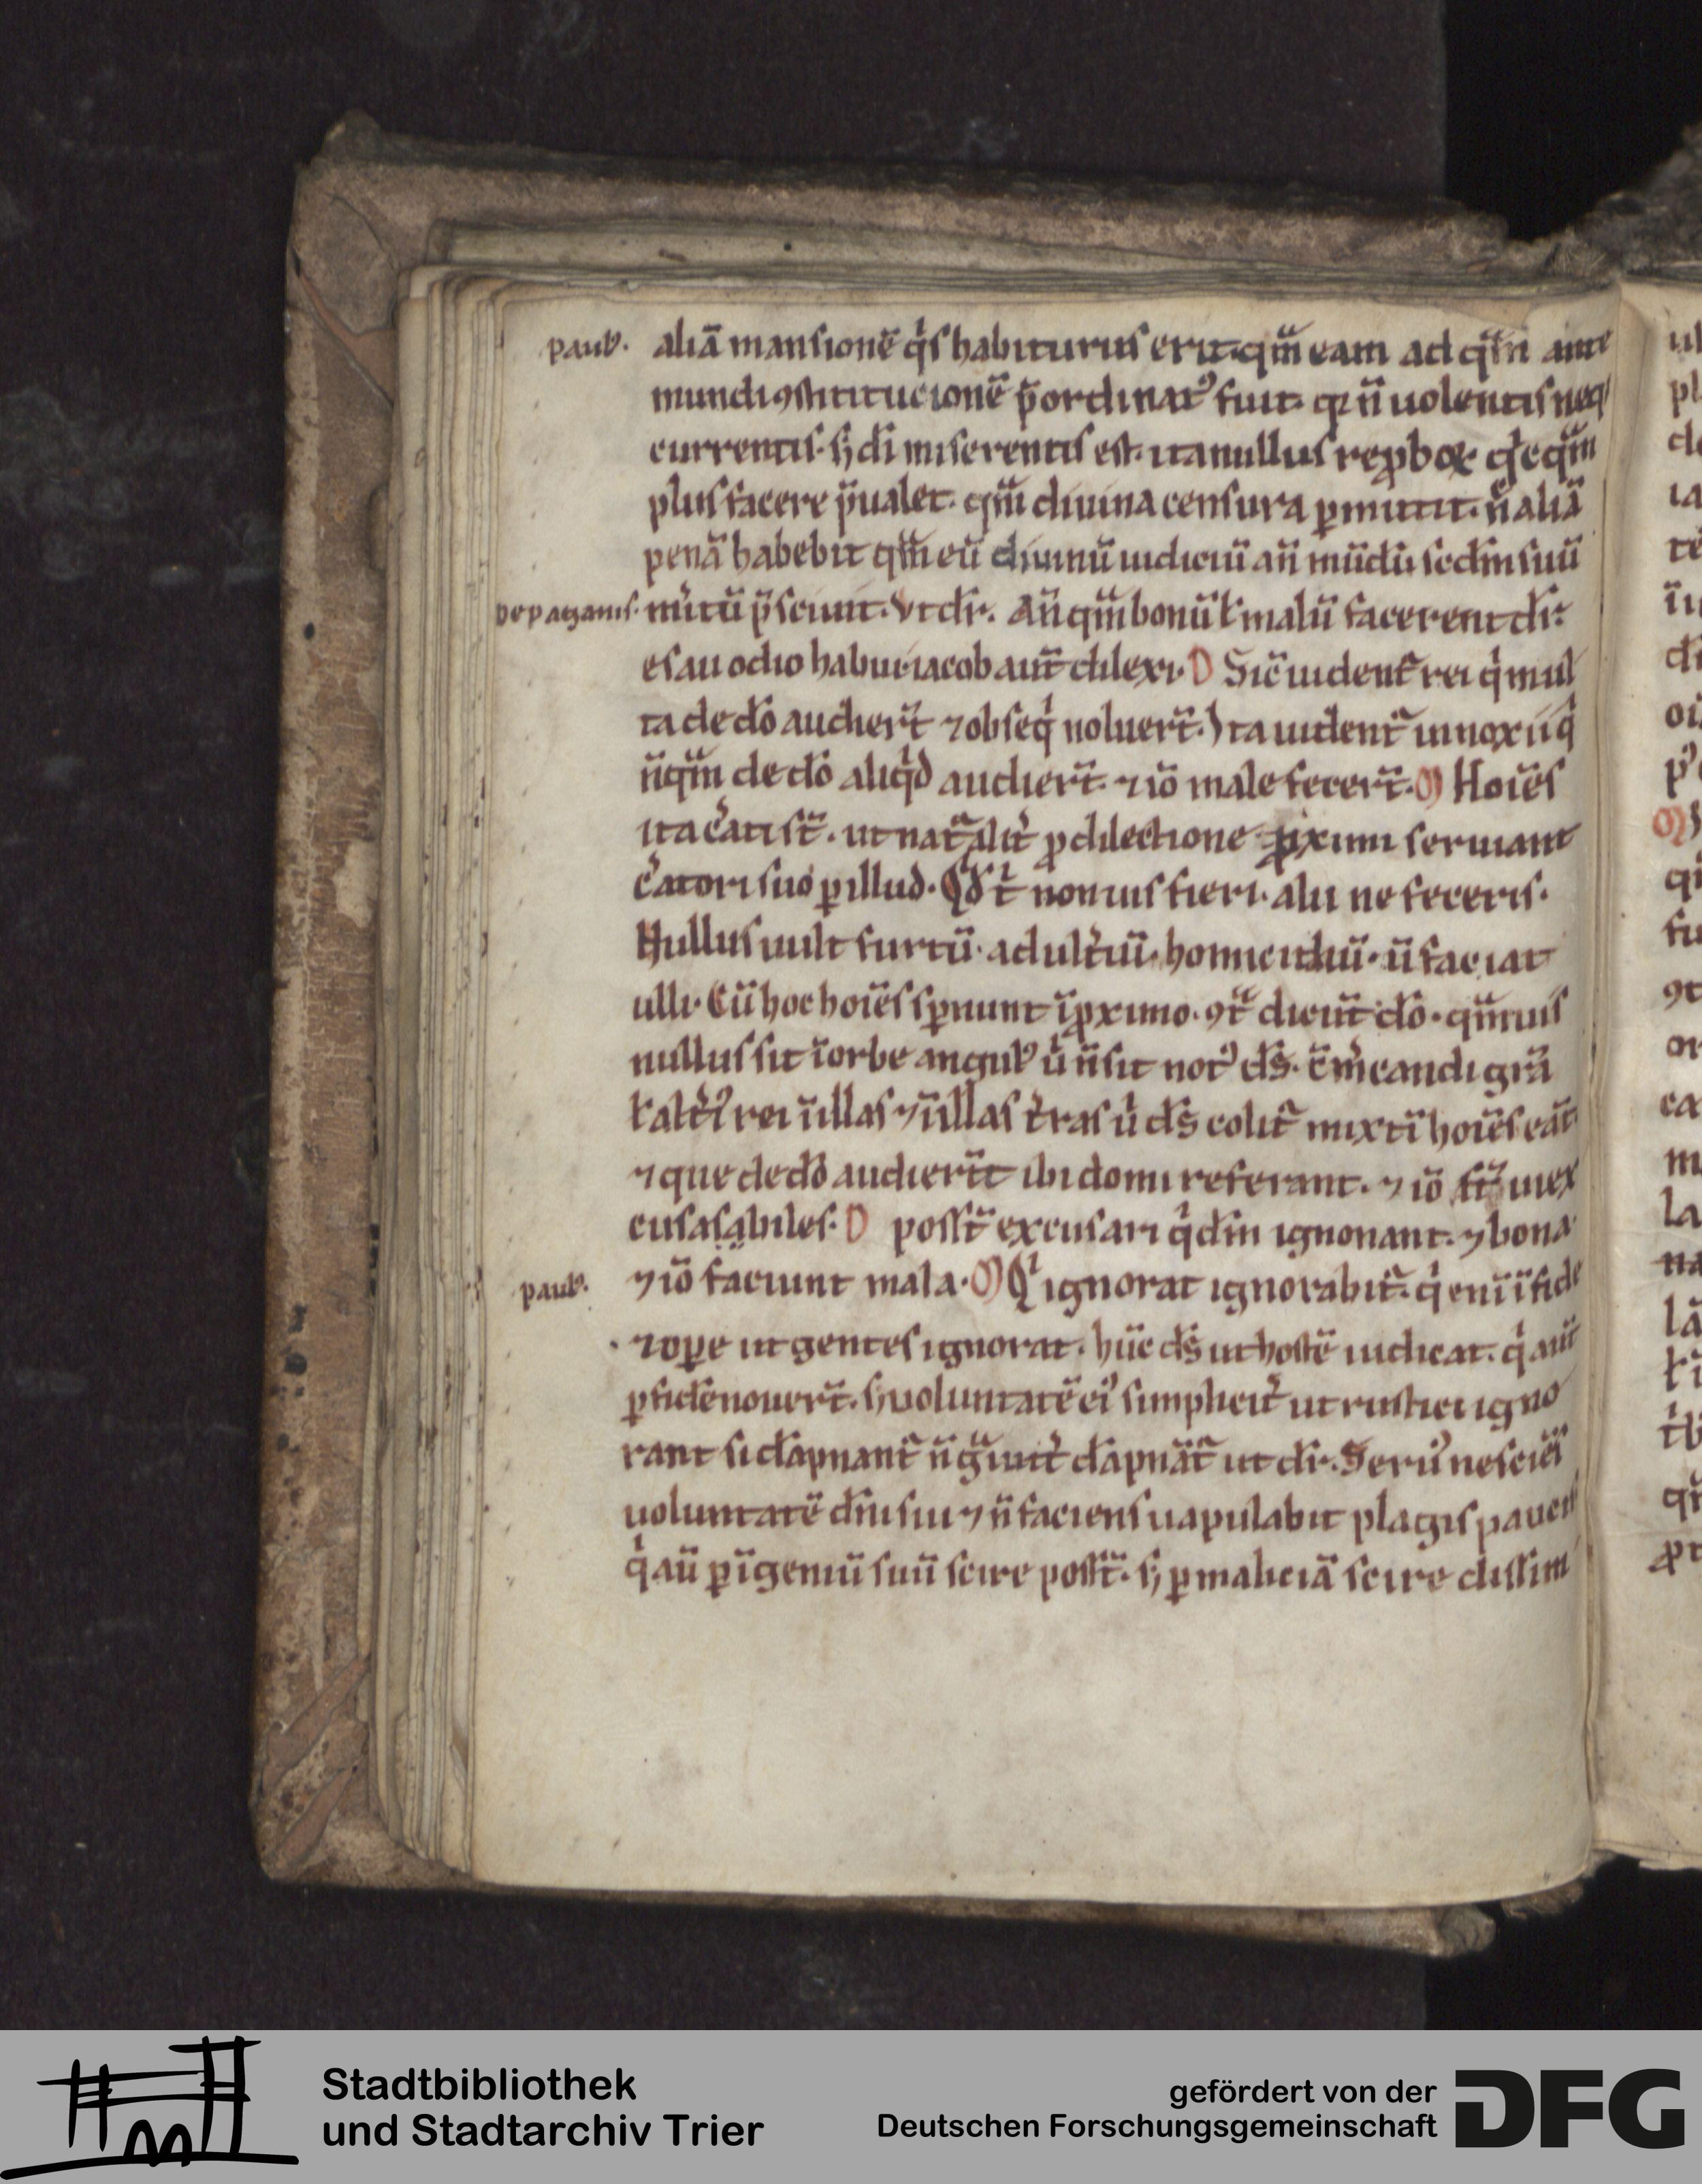 pauլꝰ. aliā mansionē qͥs habiturus erit. qm̄ eam ad q̄m ante
mundi ꝯstitucionē p̄ordinatꝰ fuit. qꝛ n̄ uolentis neqꝫ
currentis. sꝫ di miserentis est. ita nullus reꝓboꝝ
plus facere p̄ualet. qm̄ diuina censura ꝑmittit. n̄ aliā
penā habebit qm̄ eū diuinū iudiciū an̄ mūdū scdm suū
De paganis. mītū p̄sciuit. Vt dr̄. An̄ qm̄ bonū ł malū facerent dr̄.
esau odio habui. iacob aut̄ dilexi. D Sic̄ uident̄ rei qͥ mul
ta de dō audier̄t ⁊ obseqͥ noluer̄t. Ita uident̄ innoxii qͥ
n̄qm̄ de dō aliqͥd audier̄t. ⁊ iō male fecer̄t. M Hoīes
ita c̄ati st̄. ut nat̄alit̄ ꝓ dilectione ꝓximi seruiant
c̄atori suo ꝑ illud. Qd t̄ non uis fieri. alii ne feceris.
Nullus uult furtū. adult̄iū. homicidiū. ū faciat
ulli. Cū hoc hoīes sꝑnunt ī ꝓximo. ꝯt̄ dicūt dō. qm̄uis
nullus sit ī orbe angulꝰ ū n̄ sit notꝰ ds̄. c̄m̄candi grā
ł alt̄iꝰ rei ī illas ⁊ ī illas t̄ras ū ds̄ colit̄ mixtī hoīes eāt
⁊ que de dō audier̄t ibi domi referant. ⁊ iō st̄ inex
cusasabiles. D posst̄ excusari qͥ dm̄ ignonant. ⁊ bona
pauլꝰ. ⁊ iō faciunt mala. M Qͥ ignorat ignorabit̄. qͥ enī ī fide
⁊ oꝑe ut gentes ignorat. hūc ds̄ ut hostē iudicat. qͥ aut̄
ꝑ fidē nouer̄t. sꝫ uoluntatē eiꝰ simplicit̄ ut rustici igno
rant si dāpnant̄ n̄ g̃uit̄ dāpnāt̄ ut dr̄. Seruꝰ nesciēs
uoluntatē dn̄i sui ⁊ n̄ faciens uapulabit plagis paucis
qͥ aū ꝑ īgeniū suū scire posst̄. sꝫ ꝑ maliciā scire dissim
Stadtbibliothek
und Stadtarchiv Trier
gefördert von der
Deutschen Forschungsgemeinschaft
DFG